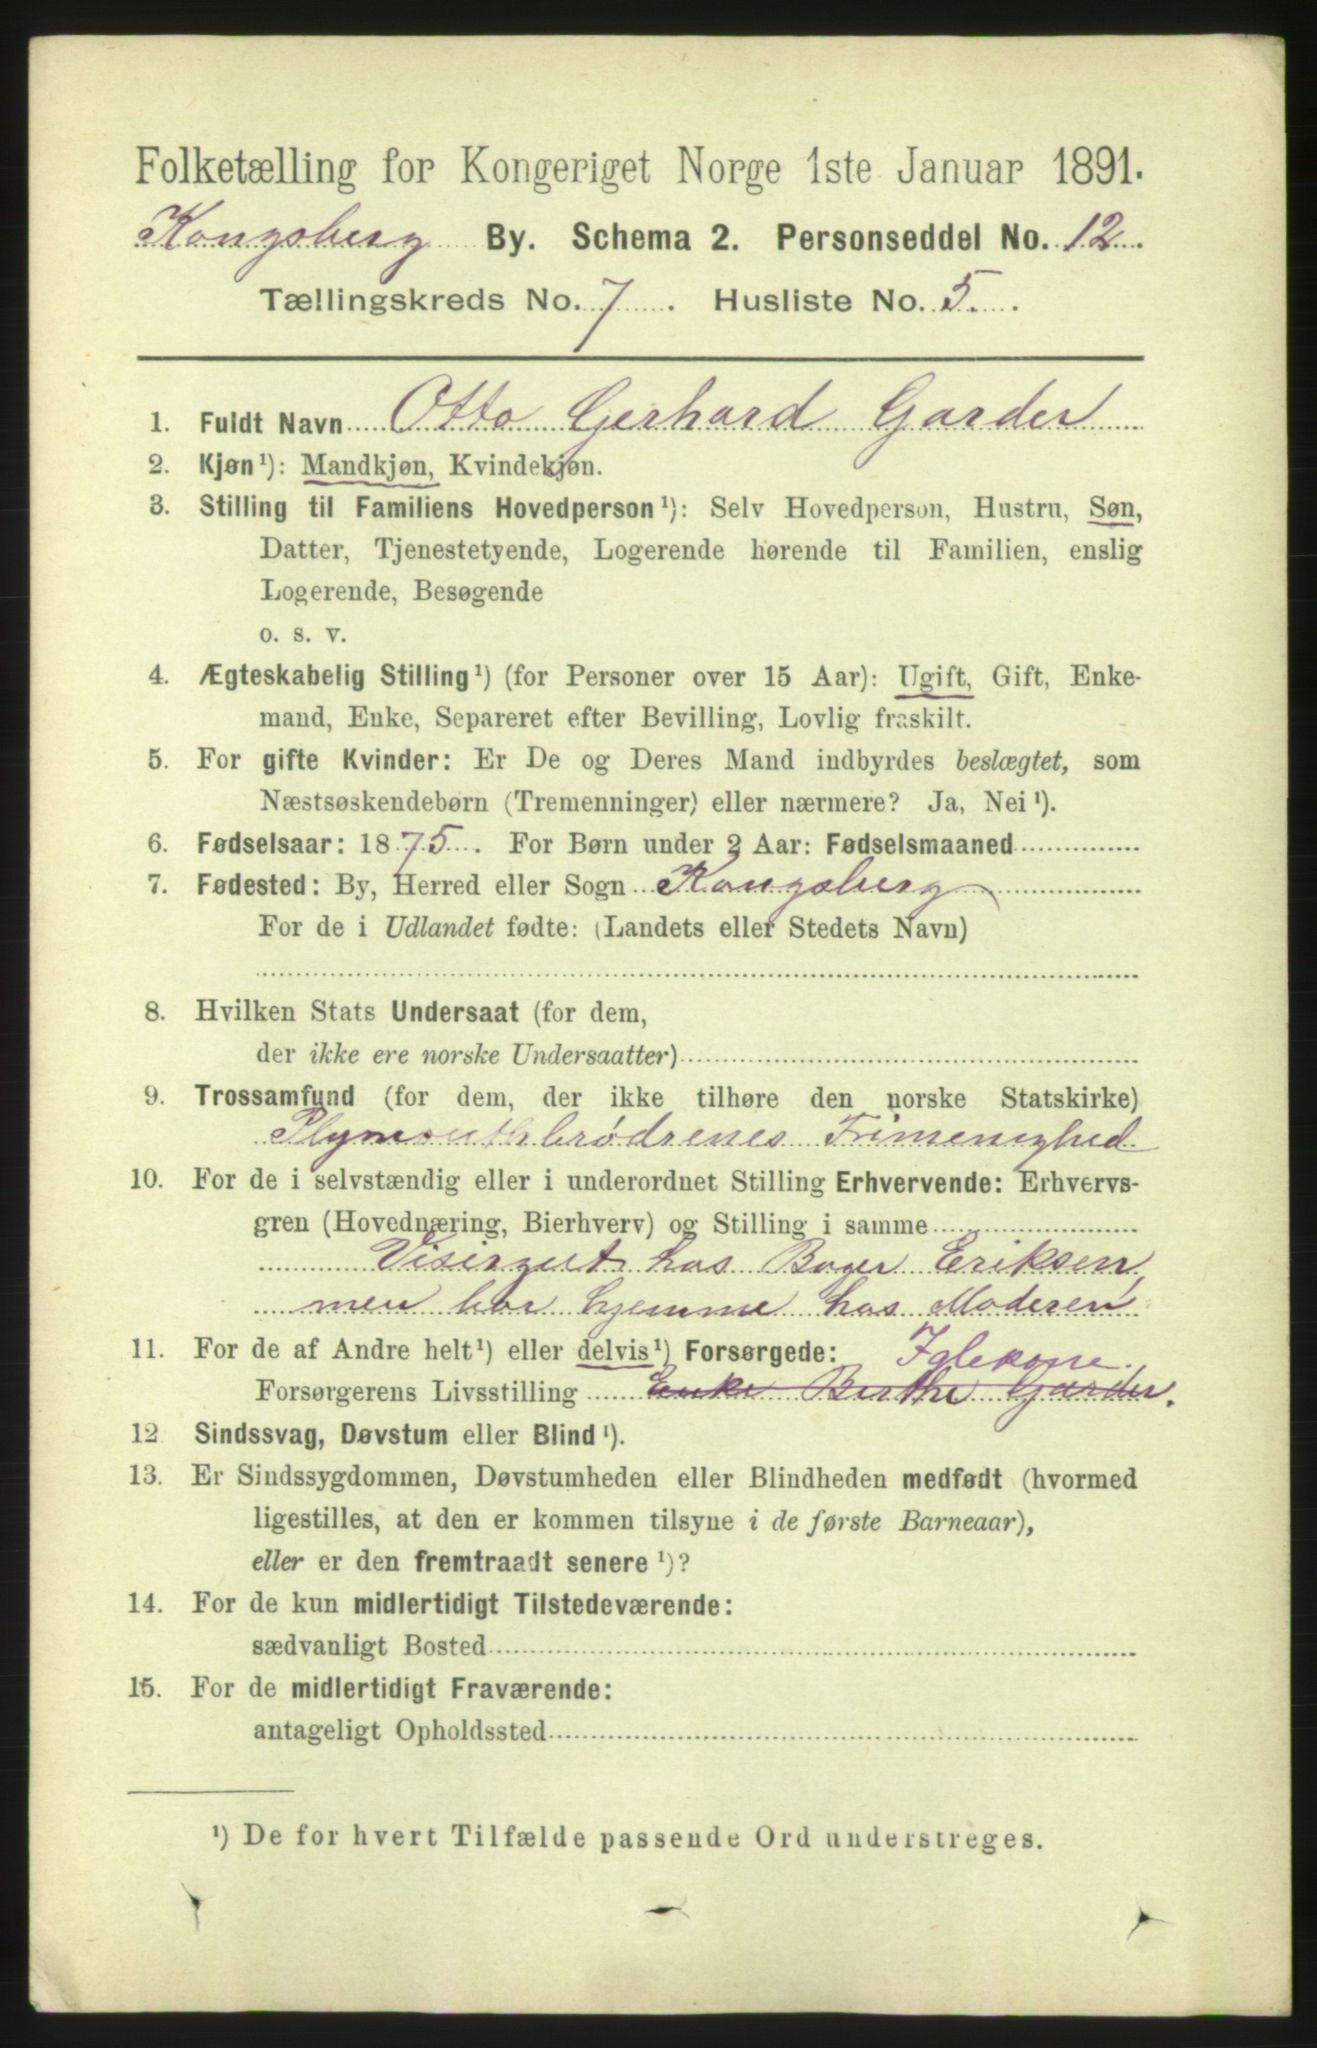 Folketælling for Kongeriget Norge 1ste Januar 1891.
Kongsberg By. Schema 2. Personseddel No. 12.
Tællingskreds No. 7. Husliste No. 5.
1. Fuldt Navn Otto Gerhard Garder
2. Kjøn¹): Mandkjøn, Kvindekjøn.
3. Stilling til Familiens Hovedperson¹): Selv Hovedperson, Hustru, Søn,
Datter, Tjenestetyende, Logerende hørende til Familien, enslig
Logerende, Besøgende
o. s. v.
4. Ægteskabelig Stilling¹) (for Personer over 15 Aar): Ugift, Gift, Enke-
mand, Enke, Separeret efter Bevilling, Lovlig fraskilt.
5. For gifte Kvinder: Er De og Deres Mand indbyrdes beslægtet, som
Næstsøskendebørn (Tremenninger) eller nærmere? Ja, Nei¹).
6. Fødselsaar: 1875. For Børn under 2 Aar: Fødselsmaaned
7. Fødested: By, Herred eller Sogn Kongsberg
For de i Udlandet fødte: (Landets eller Stedets Navn)
8. Hvilken Stats Undersaat (for dem,
der ikke ere norske Undersaatter)
9. Trossamfund (for dem, der ikke tilhøre den norske Statskirke)
Plymouthbrødrenes Frimenighed
10. For de i selvstændig eller i underordnet Stilling Erhvervende: Erhvervs-
gren (Hovednæring, Bierhverv) og Stilling i samme
Visergut hos Bager Eriksen,
men bor hjemme hos Moderen
11. For de af Andre helt¹) eller delvis¹) Forsørgede: Iglekone.
Forsørgerens Livsstilling Enke Berthe Garder.
12 Sindssvag, Døvstum eller Blind¹).
13. Er Sindssygdommen, Døvstumheden eller Blindheden medfødt (hvormed
ligestilles, at den er kommen tilsyne i de første Barneaar),
eller er den fremtraadt senere¹)?
14. For de kun midlertidigt Tilstedeværende:
sædvanligt Bosted
15. For de midlertidigt Fraværende:
antageligt Opholdssted
¹) De for hvert Tilfælde passende Ord understreges.